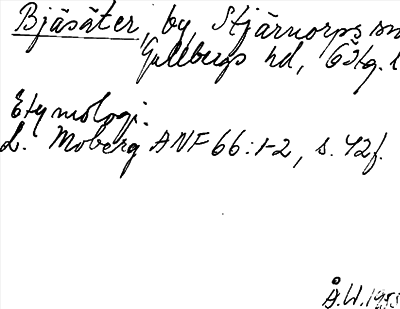 Bjäsäter, by, Stjärnorps sn
Gullbergs hd, Östg. l
Etymologi.
L. Moberg ANF 66:1-2, s. 42f.
Å.W. 1955